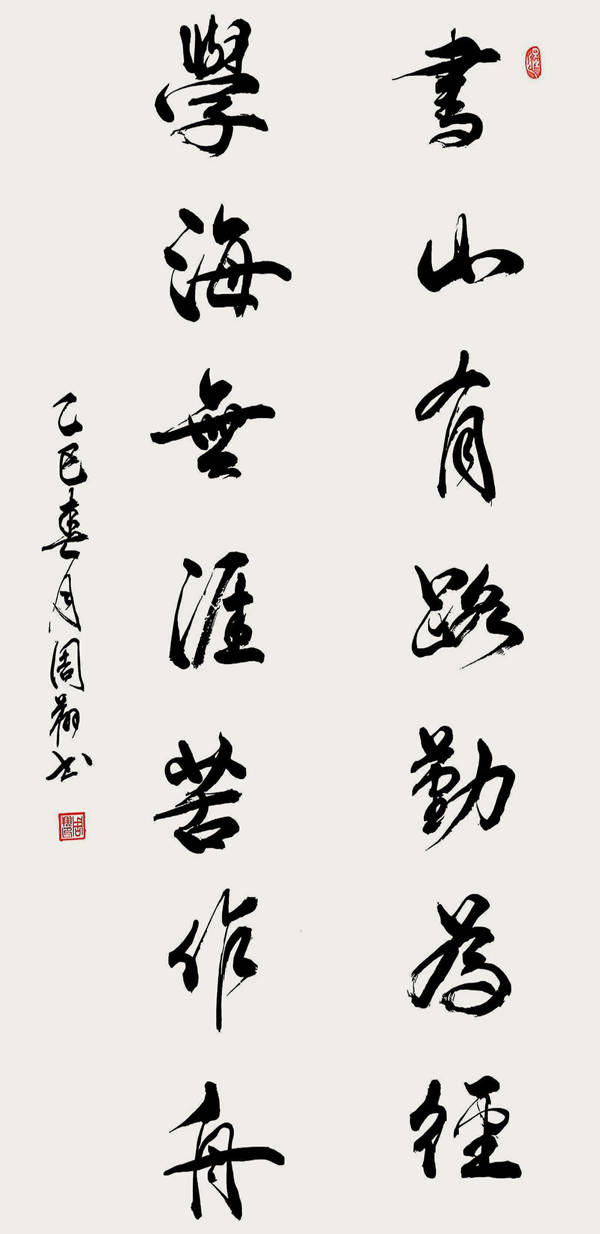 書山有路勤為徑
學海無涯苦作舟
乙巳春月周翔书